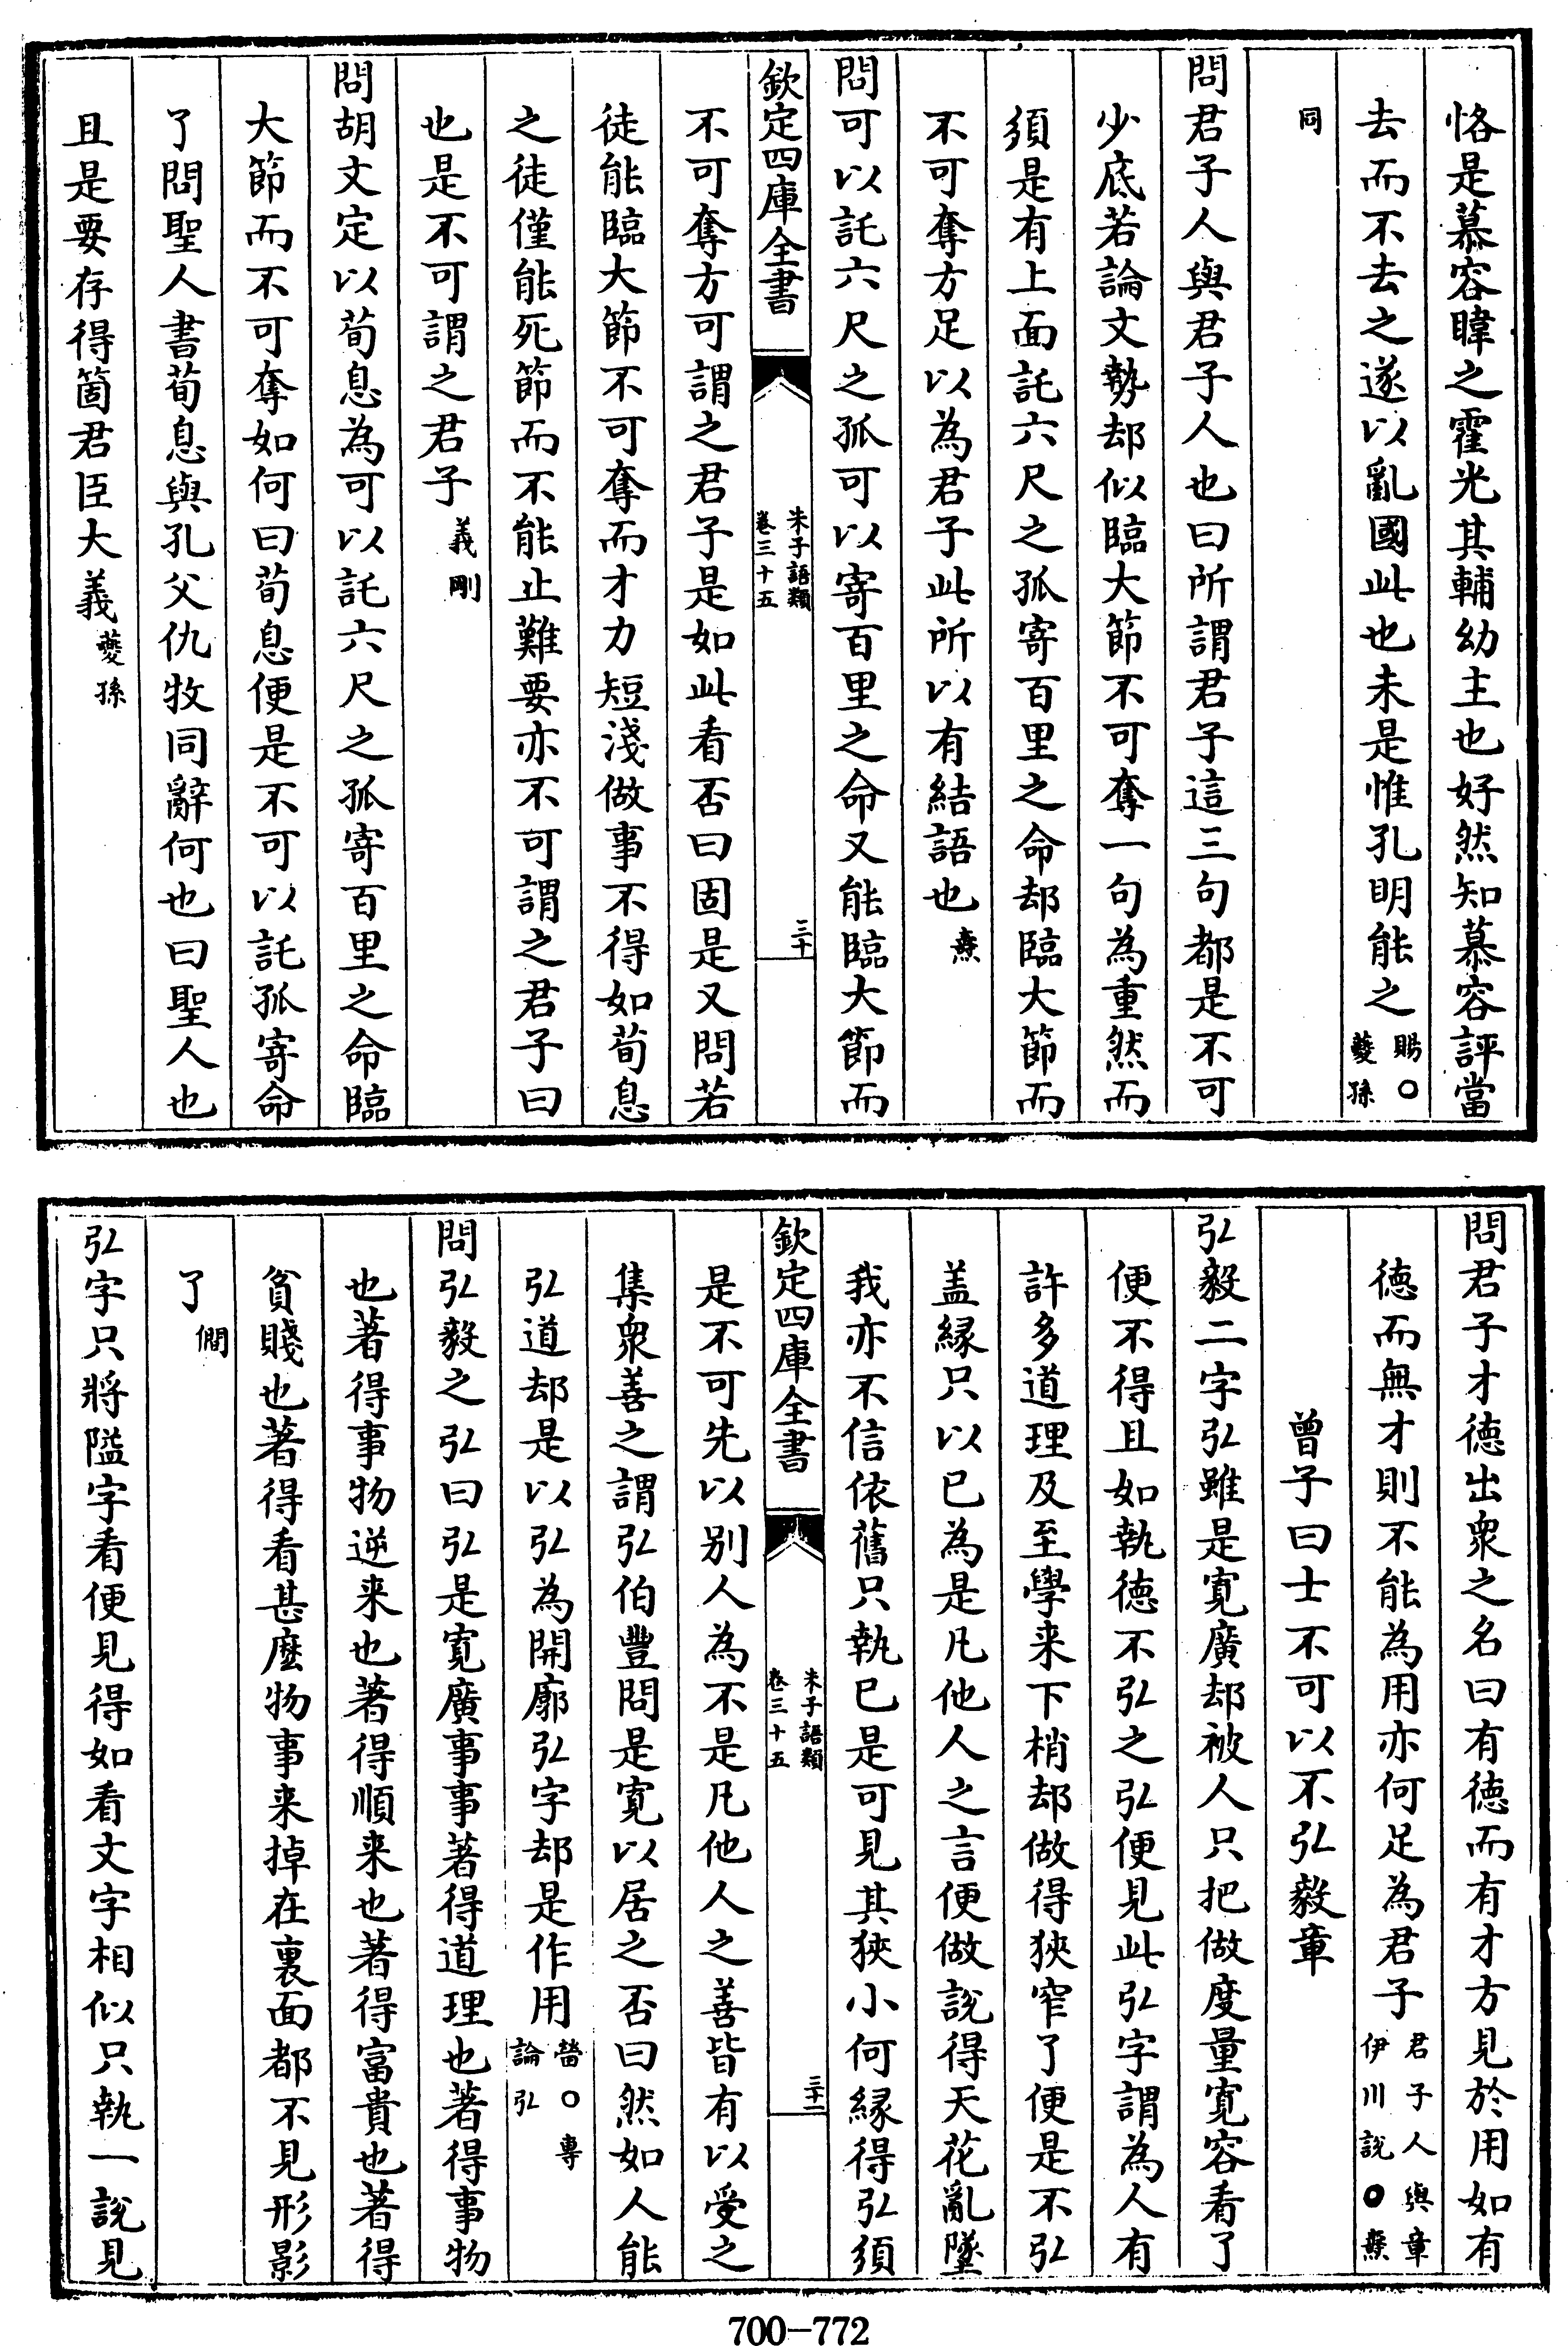 恪是慕容暐之霍光其輔幼主也好然知慕容評當
去而不去之遂以亂國此也未是惟孔明能之賜○夔孫
同
問君子人與君子人也曰所謂君子這三句都是不可
少底若論文勢却似臨大節不可奪一句為重然而
須是有上面託六尺之孤寄百里之命却臨大節而
不可奪方足以為君子此所以有結語也燾
問可以託六尺之孤可以寄百里之命又能臨大節而
欽定四庫全書
朱子語類
卷三十五
三十
不可奪方可謂之君子是如此看否曰固是又問若
徒能臨大節不可奪而才力短淺做事不得如荀息
之徒僅能死節而不能止難要亦不可謂之君子曰
也是不可謂之君子義剛
問胡文定以荀息為可以託六尺之孤寄百里之命臨
大節而不可奪如何曰荀息便是不可以託孤寄命
了問聖人書荀息與孔父仇牧同辭何也曰聖人也
且是要存得箇君臣大義夔孫
問君子才徳出衆之名曰有徳而有才方見於用如有
徳而無才則不能為用亦何足為君子君子人與章伊川說○燾
曾子曰士不可以不弘毅章
弘毅二字弘雖是寛廣却被人只把做度量寛容看了
便不得且如執徳不弘之弘便見此弘字謂為人有
許多道理及至學来下梢却做得狹窄了便是不弘
盖縁只以已為是凡他人之言便做說得天花亂墜
我亦不信依舊只執已是可見其狹小何縁得弘須
欽定四庫全書
朱子語類
卷三十五
三十一
是不可先以别人為不是凡他人之善皆有以受之
集衆善之謂弘伯豐問是寛以居之否曰然如人能
弘道却是以弘為開廓弘字却是作用㽦○專論弘
問弘毅之弘曰弘是寛廣事事著得道理也著得事物
也著得事物逆来也著得順来也著得富貴也著得
貧賤也著得看甚麽物事来掉在裏面都不見形影
了僩
弘字只將隘字看便見得如看文字相似只執一說見
700-772